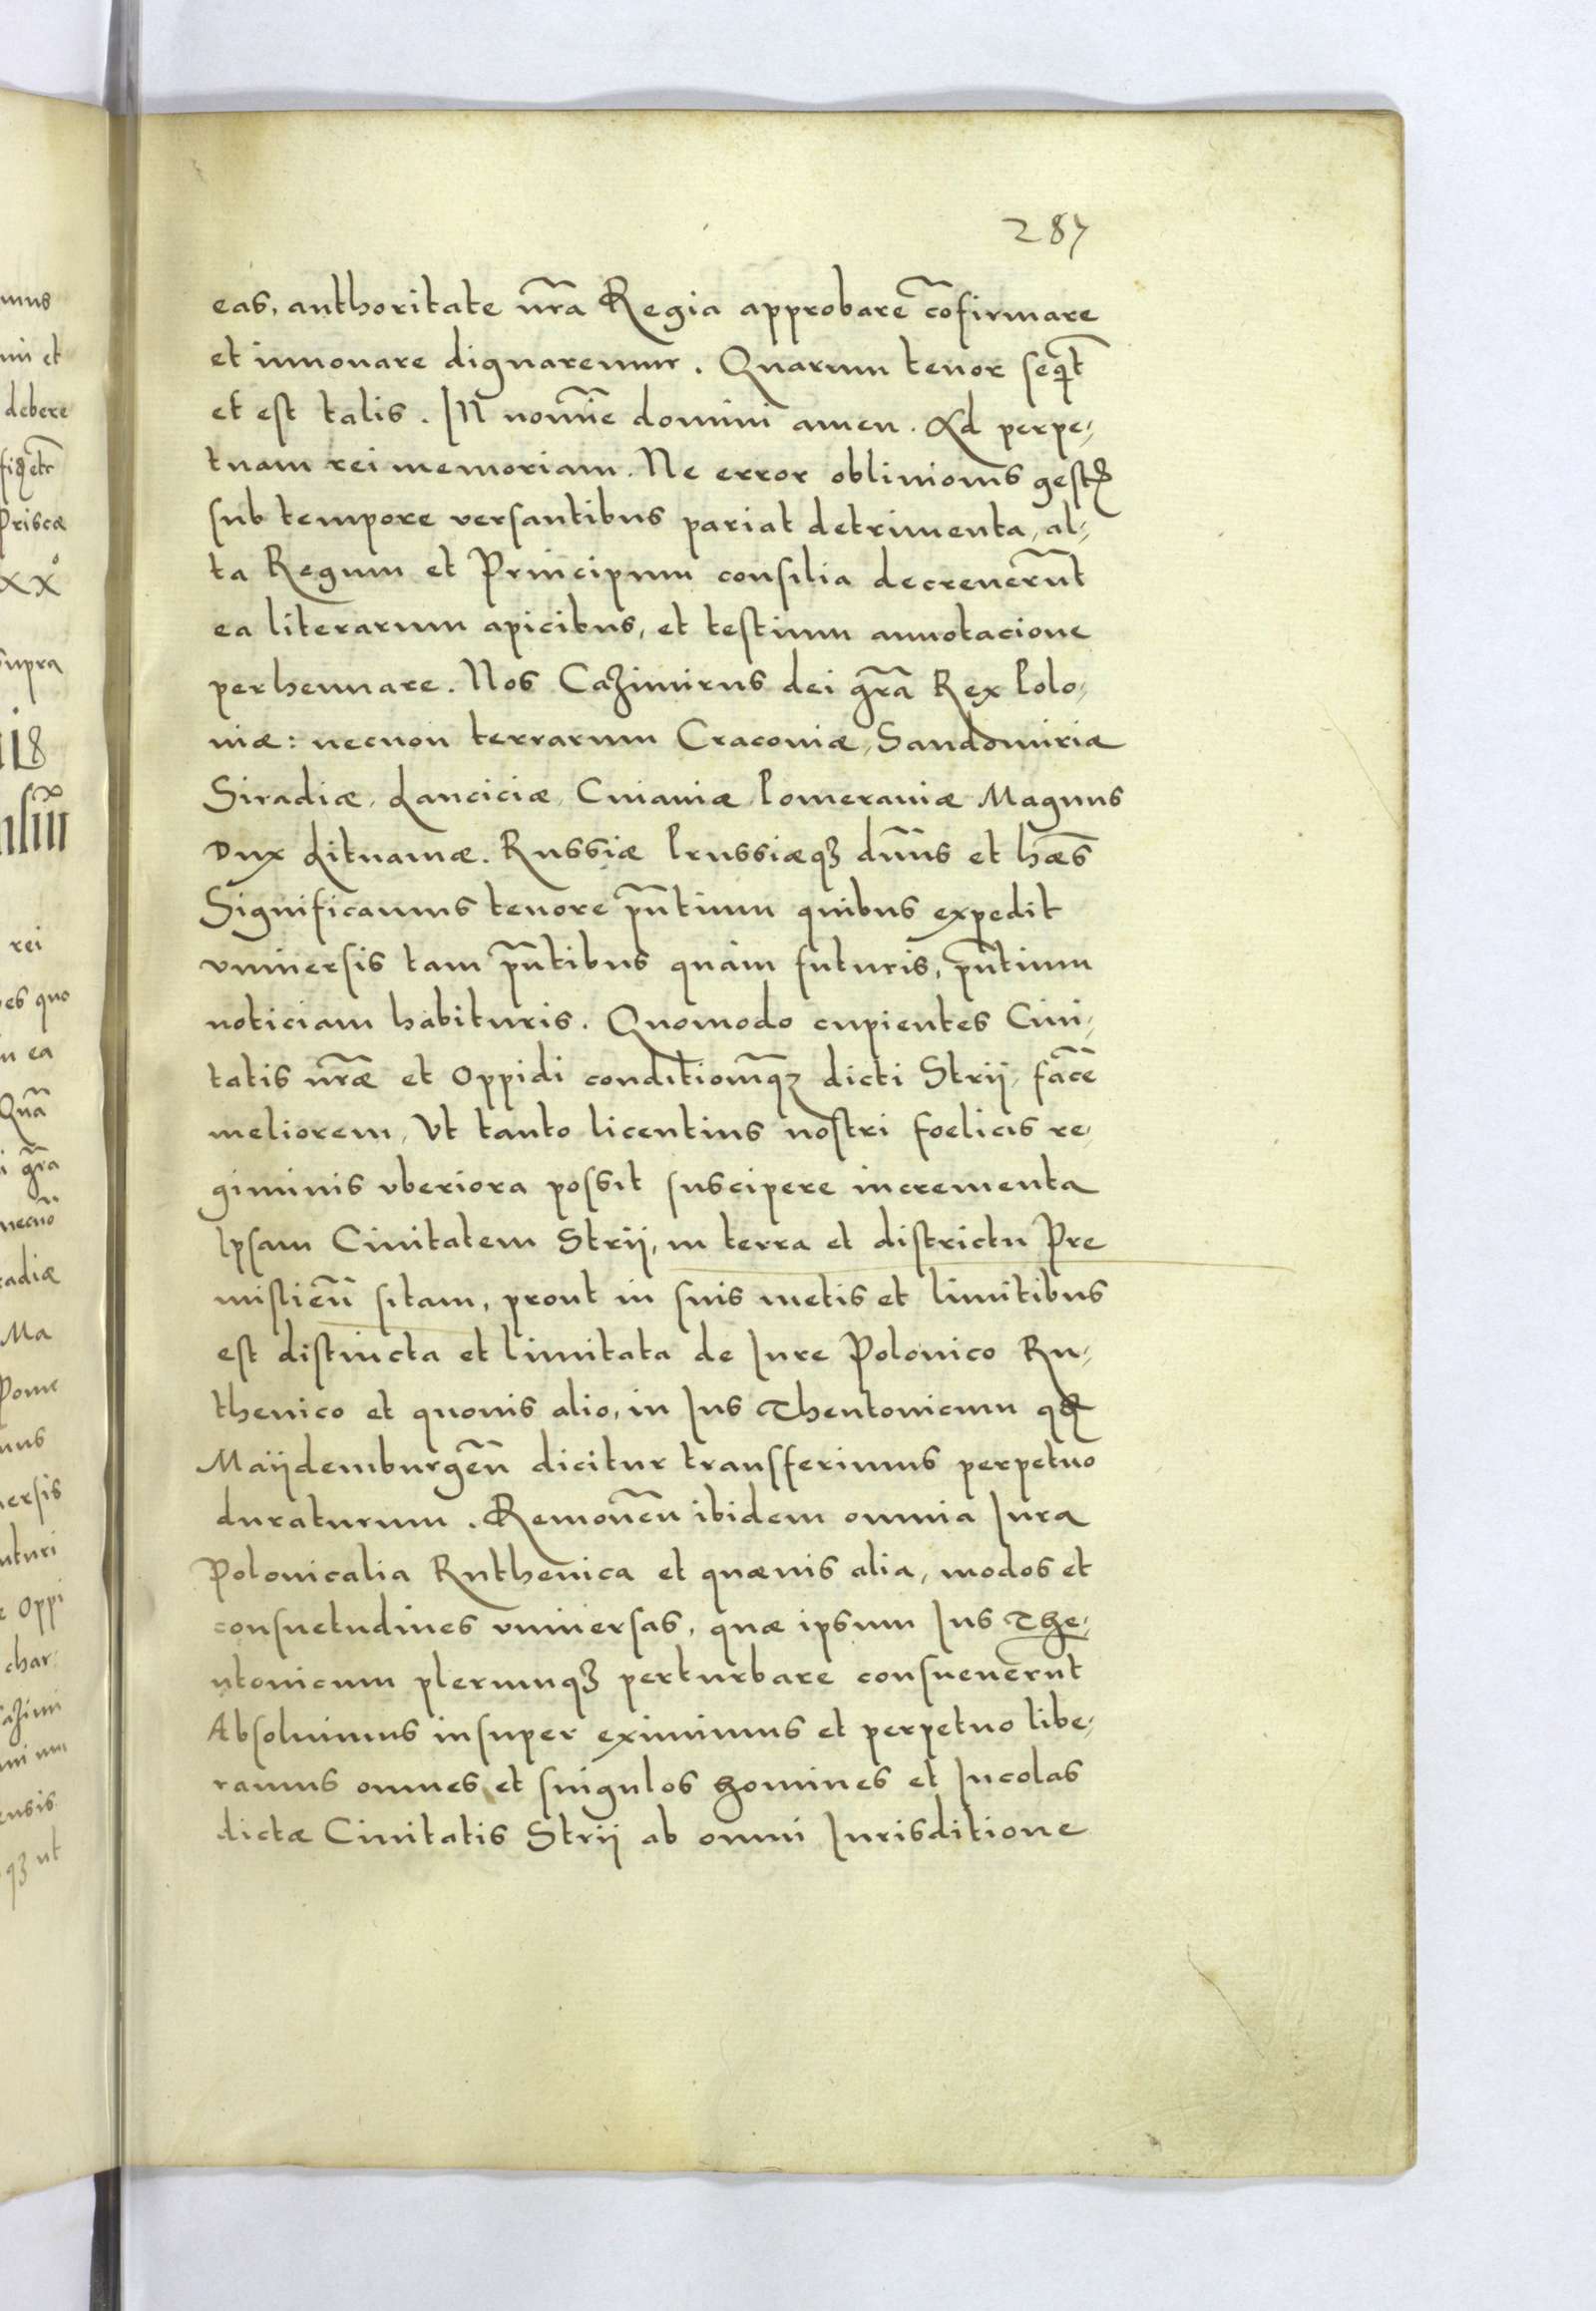 287
eas, authoritate nr̃a Regia approbare cõfirmare
et innouare dignaremur. Quarum tenor seqͥt̃
et est talis. IN nomĩe domini amen. Ad perpe,
tuam rei memoriam. Ne error obliuionis gestꝭ
sub tempore versantibus pariat detrimenta, al,
ta Regum et Principum consilia decreuerũt
ea literarum apicibus, et testium annotacione
perhennare. Nos Cazimirus dei gr̃a Rex Polo,
niæ: necnon terrarum Cracouiæ, Sandomiriæ
Siradiæ, Lanciciæ, Cuiauiæ Pomeraniæ Magnus
Dux Lituaniæ. Russiæ Prussiæqꝫ dñus et hæs̃
Significamus tenore pñtium quibus expedit
vniuersis tam pñtibus quàm futuris, pñtium
noticiam habituris. Quomodo cupientes Ciui,
tatis nr̃æ et Oppidi conditionẽqꝫ dicti Strij, facẽ
meliorem, Vt tanto licentius nostri foelicis re,
giminis vberiora possit suscipere incrementa
Ipsam Ciuitatem Strij, in terra et districtu Pre
misliẽn sitam, prout in suis metis et limitibus
est distincta et limitata de Iure Polonico Ru,
thenico et quouis alio, in Ius Theutonicum qđ
Maijdemburgẽn dicitur transferimus perpetuo
duraturum. Remouẽn ibidem omnia Iura
Polonicalia Ruthenica et quæuis alia, modos et
consuetudines vniuersas, quæ ipsum Ius The,
utonicum plerumqꝫ perturbare consueuerũt
Absoluimus insuper eximimus et perpetuo libe,
ramus omnes et singulos homines et Incolas
dictæ Ciuitatis Strij ab omni Iurisditione